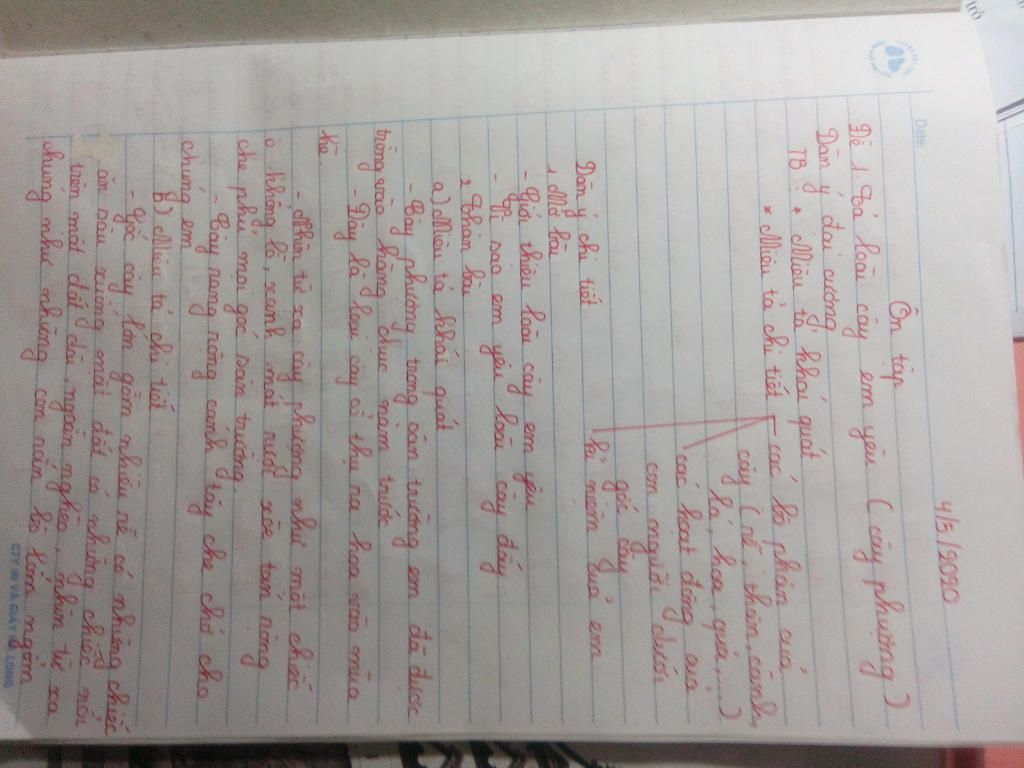 Date:
4/5/2020
Ôn tập
Đề 1: Tả loài cây em yêu (cây phượng)
Dàn ý đại cương
TB: * Miêu tả khái quát
* Miêu tả chi tiết - các bộ phận của
cây (rễ, thân, cành,
lá, hoa, quả,...)
các hoạt động của
con người dưới
gốc cây
kỉ niệm của em
Dàn ý chi tiết
1, Mở bài
- Giới thiệu loài cây em yêu
- Vì sao em yêu loài cây đấy
2, Thân bài
a) Miêu tả khái quát
- Cây phượng trong sân trường em đã được
trồng vào hàng chục năm trước
- Đây là loại cây cổ thụ ra hoa vào mùa
hè
- Nhìn từ xa cây phượng như một chiếc
ô khổng lồ, xanh mát rượi xòe tán rộng
che phủ mọi góc sân trường.
- Cây rang rộng cánh tay che chở cho
chúng em
b) Miêu tả chi tiết
- Gốc cây lớn gồm nhiều rễ có những chiếc
ăn sâu xuống mặt đất có những chiếc nổi
trên mặt đất dài, ngoằn nghèo, nhìn từ xa
chúng như những con rắn bò lổm ngổm
CTY IN VÀ GIẤY HẠ LONG